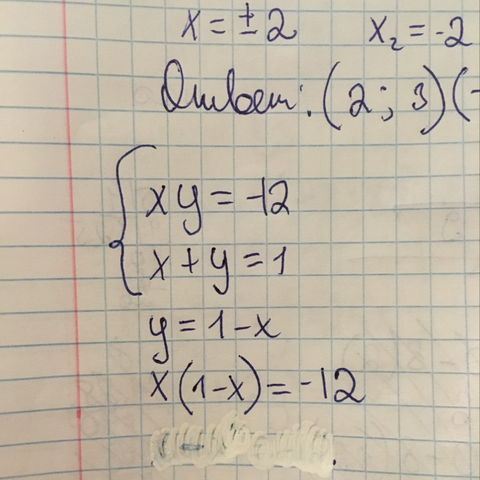 x = ±2 x₂ = -2
Ответ: (2; 3) (-
{ xy = -12
x + y = 1
y = 1 - x
x(1-x) = -12